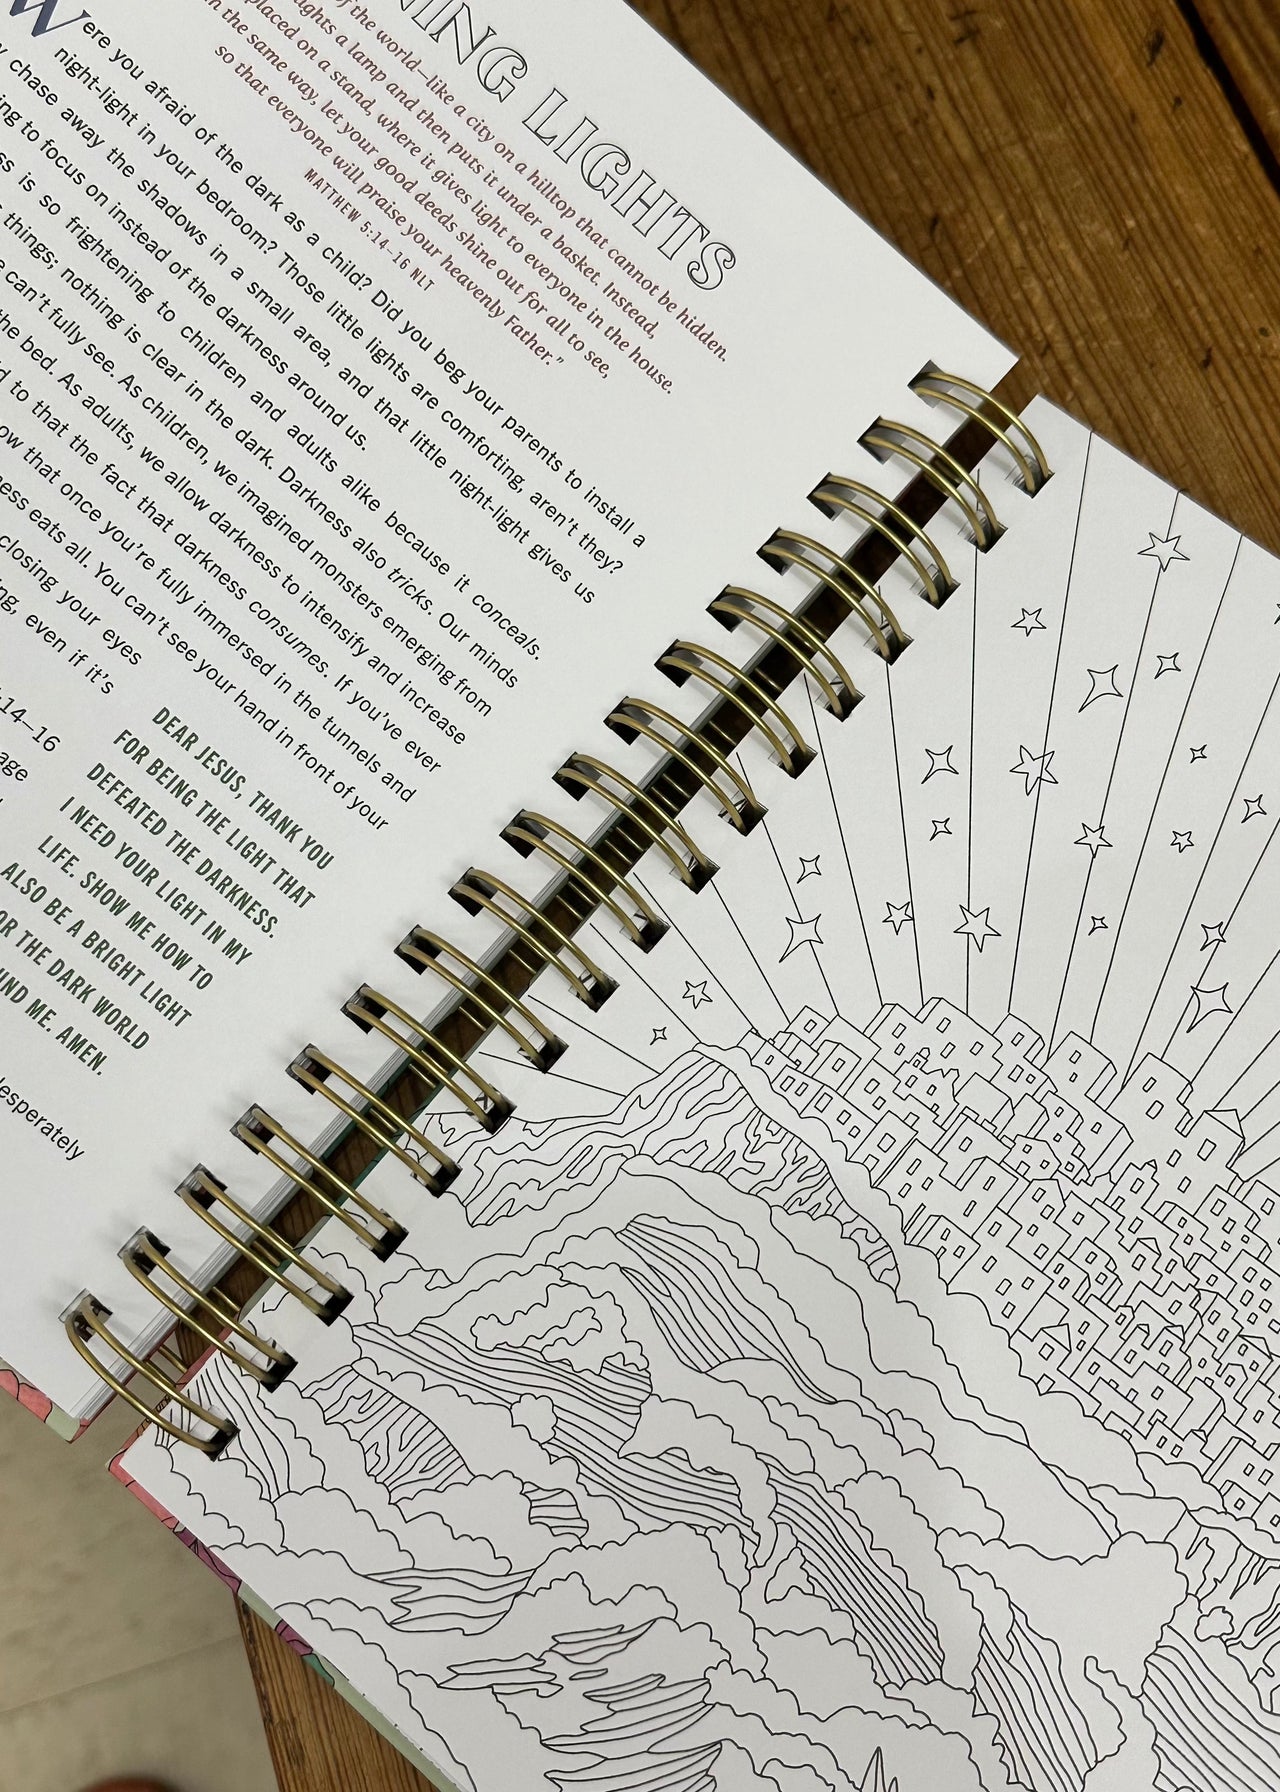 NING LIGHTS
of the world—like a city on a hilltop that cannot be hidden.
ghts a lamp and then puts it under a basket. Instead,
placed on a stand, where it gives light to everyone in the house.
n the same way, let your good deeds shine out for all to see,
so that everyone will praise your heavenly Father.”
MATTHEW 5:14–16 NLT
Were you afraid of the dark as a child? Did you beg your parents to install a
night-light in your bedroom? Those little lights are comforting, aren’t they?
y chase away the shadows in a small area, and that little night-light gives us
ing to focus on instead of the darkness around us.
ss is so frightening to children and adults alike because it conceals.
things; nothing is clear in the dark. Darkness also tricks. Our minds
e can’t fully see. As children, we imagined monsters emerging from
the bed. As adults, we allow darkness to intensify and increase
d to that the fact that darkness consumes. If you’ve ever
ow that once you’re fully immersed in the tunnels and
ness eats all. You can’t see your hand in front of your
closing your eyes
ng, even if it’s
:14–16
age
DEAR JESUS, THANK YOU
FOR BEING THE LIGHT THAT
DEFEATED THE DARKNESS.
I NEED YOUR LIGHT IN MY
LIFE. SHOW ME HOW TO
ALSO BE A BRIGHT LIGHT
OR THE DARK WORLD
UND ME. AMEN.
desperately